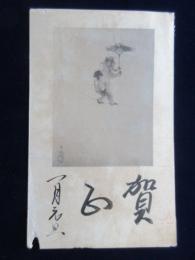 賀
正
一月元旦